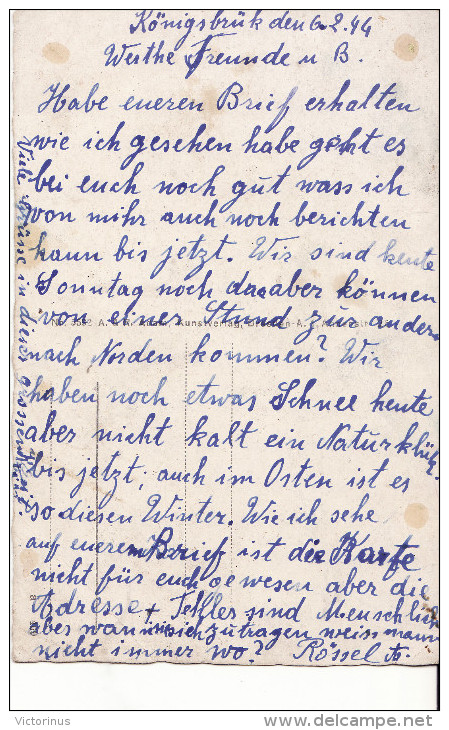 Königsbrük den 6.2.44
Werthe Freunde u B.
Habe eueren Brief erhalten
wie ich gesehen habe geht es
bei euch noch gut wass ich
von mihr auch noch berichten
kann bis jetzt. Wir sind heute
Sonntag noch da aber können
von einer Stund zur ander
nach Norden kommen? Wir
haben noch etwas Schnee heute
aber nicht kalt ein
bis jetzt, auch im Osten ist es
so diesen Winter. Wie ich sehe
auf euerem Brief ist die Karte
nicht für euch gewesen aber die
Adresse + Fehler sind Menschlich
aber wan sich zutragen weiss mann
nicht immer wo? Rössel
Viele Grüsse in dieser grossen
Kunstverlag, Dresden-A.
Victorinus
www.delcampe.net